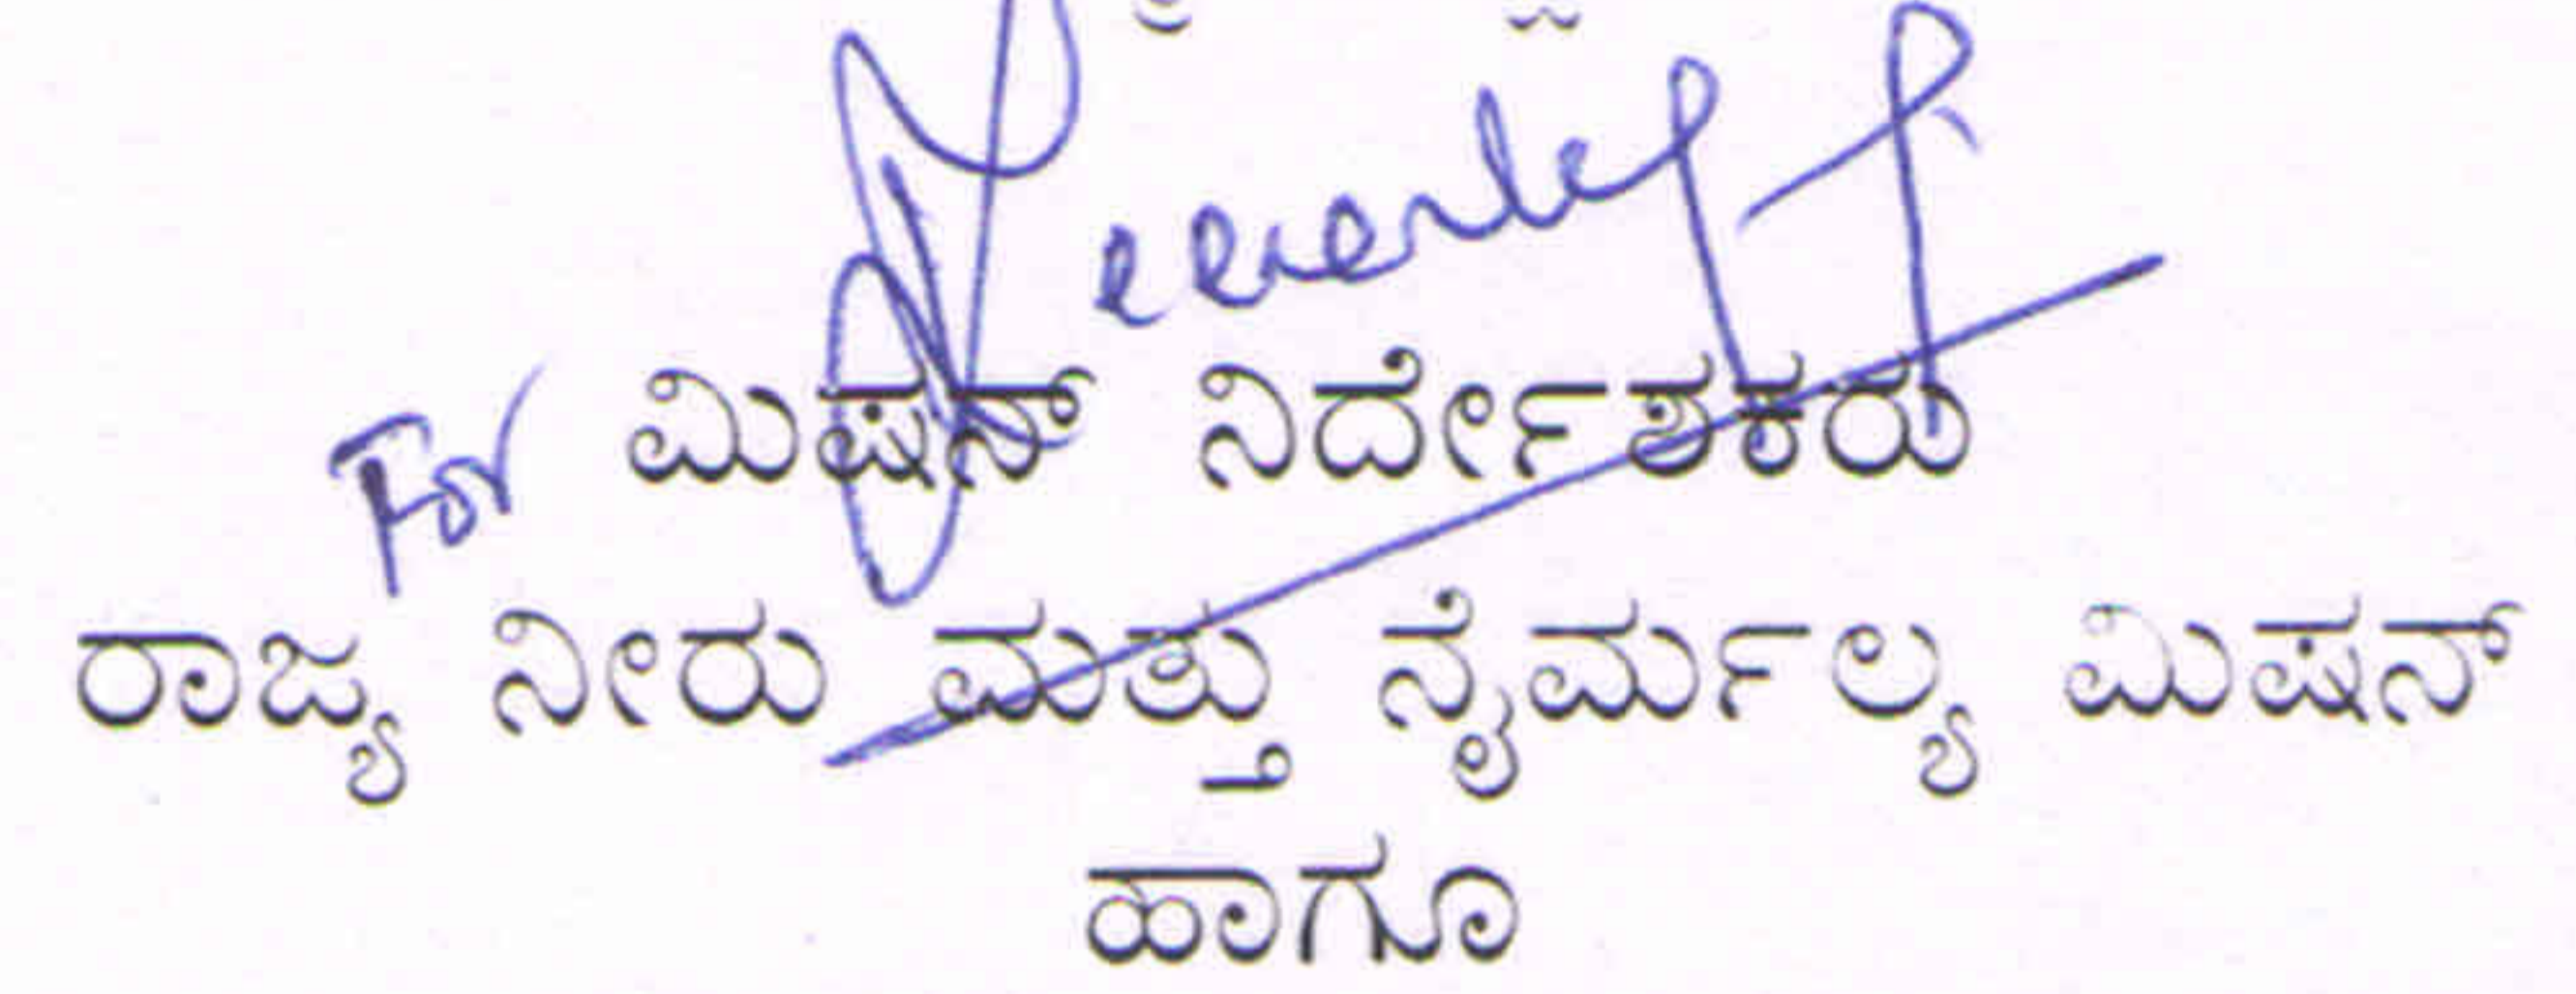 For ಮಿಷನ್ ನಿರ್ದೇಶಕರು
ರಾಜ್ಯ ನೀರು ಮತ್ತು ನೈರ್ಮಲ್ಯ ಮಿಷನ್
ಹಾಗೂ